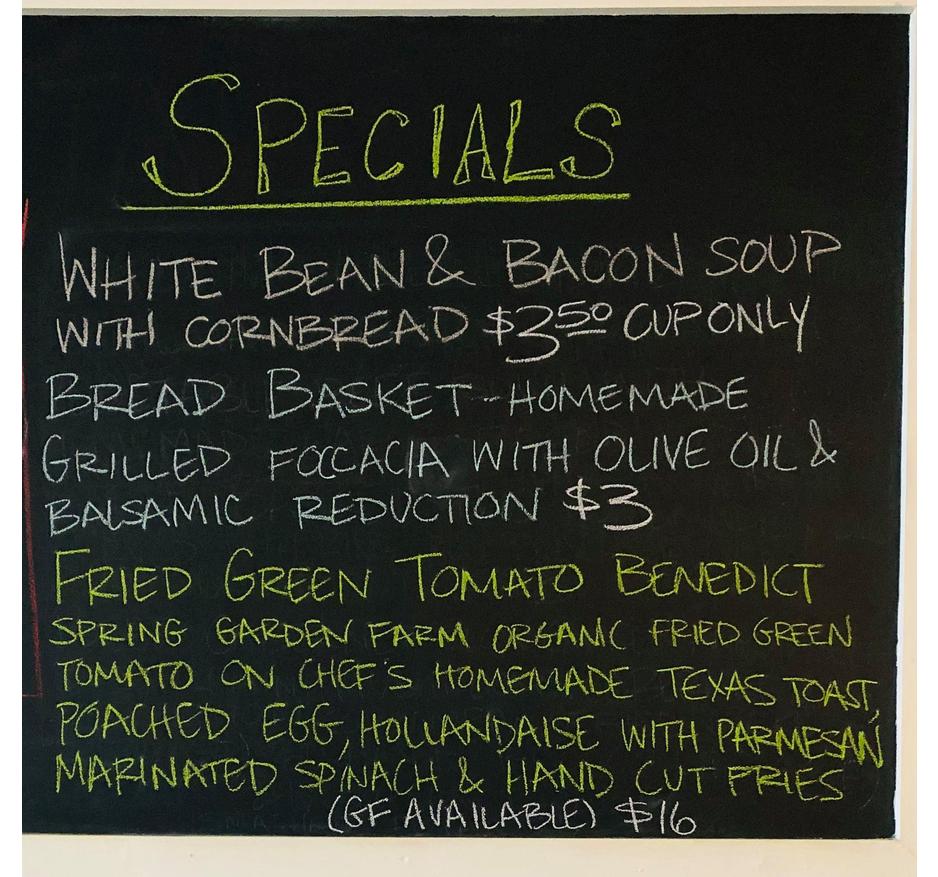 SPECIALS
WHITE BEAN & BACON SOUP
WITH CORNBREAD $3.50 CUP ONLY
BREAD BASKET - HOMEMADE
GRILLED FOCCACIA WITH OLIVE OIL &
BALSAMIC REDUCTION $3
FRIED GREEN TOMATO BENEDICT
SPRING GARDEN FARM ORGANIC FRIED GREEN
TOMATO ON CHEF'S HOMEMADE TEXAS TOAST,
POACHED EGG, HOLLANDAISE WITH PARMESAN
MARINATED SPINACH & HAND CUT FRIES
(GF AVAILABLE) $16